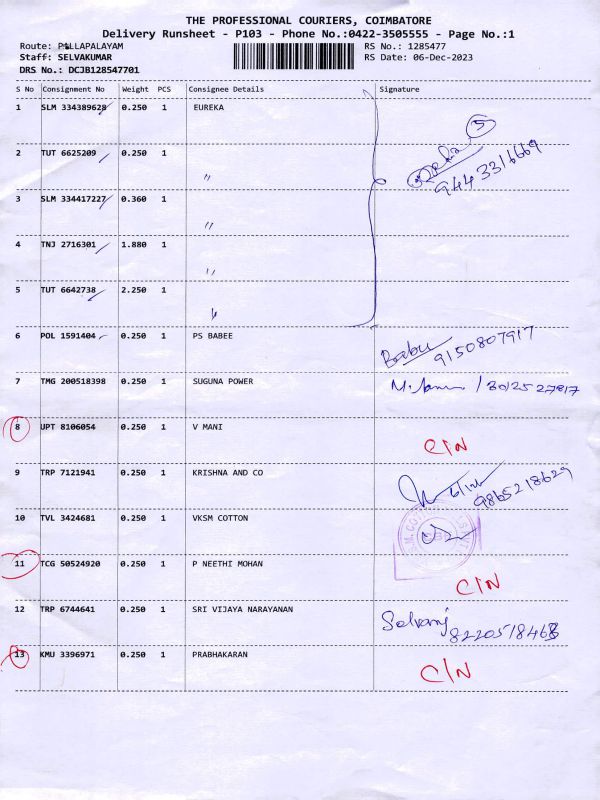 THE PROFESSIONAL COURIERS, COIMBATORE
Delivery Runsheet - P103 - Phone No.:0422-3505555 - Page No.:1
Route: PALLAPALAYAM RS No.: 1285477
Staff: SELVAKUMAR RS Date: 06-Dec-2023
DRS No.: DCJB128547701
S No Consignment No Weight PCS Consignee Details Signature
1 SLM 334389628 0.250 1 EUREKA
5
2 TUT 6625209 0.250 1 〃
9443316669
3 SLM 334417227 0.360 1 〃
4 TNJ 2716301 1.880 1 〃
5 TUT 6642738 2.250 1 〃
6 POL 1591404 0.250 1 PS BABEE
Babu 9150807917
7 TMG 200518398 0.250 1 SUGUNA POWER
8 UPT 8106054 0.250 1 V MANI
C/N
9 TRP 7121941 0.250 1 KRISHNA AND CO
9865218629
10 TVL 3424681 0.250 1 VKSM COTTON
11 TCG 50524920 0.250 1 P NEETHI MOHAN
C/N
12 TRP 6744641 0.250 1 SRI VIJAYA NARAYANAN
Selvaraj
13 KMU 3396971 0.250 1 PRABHAKARAN
C/N